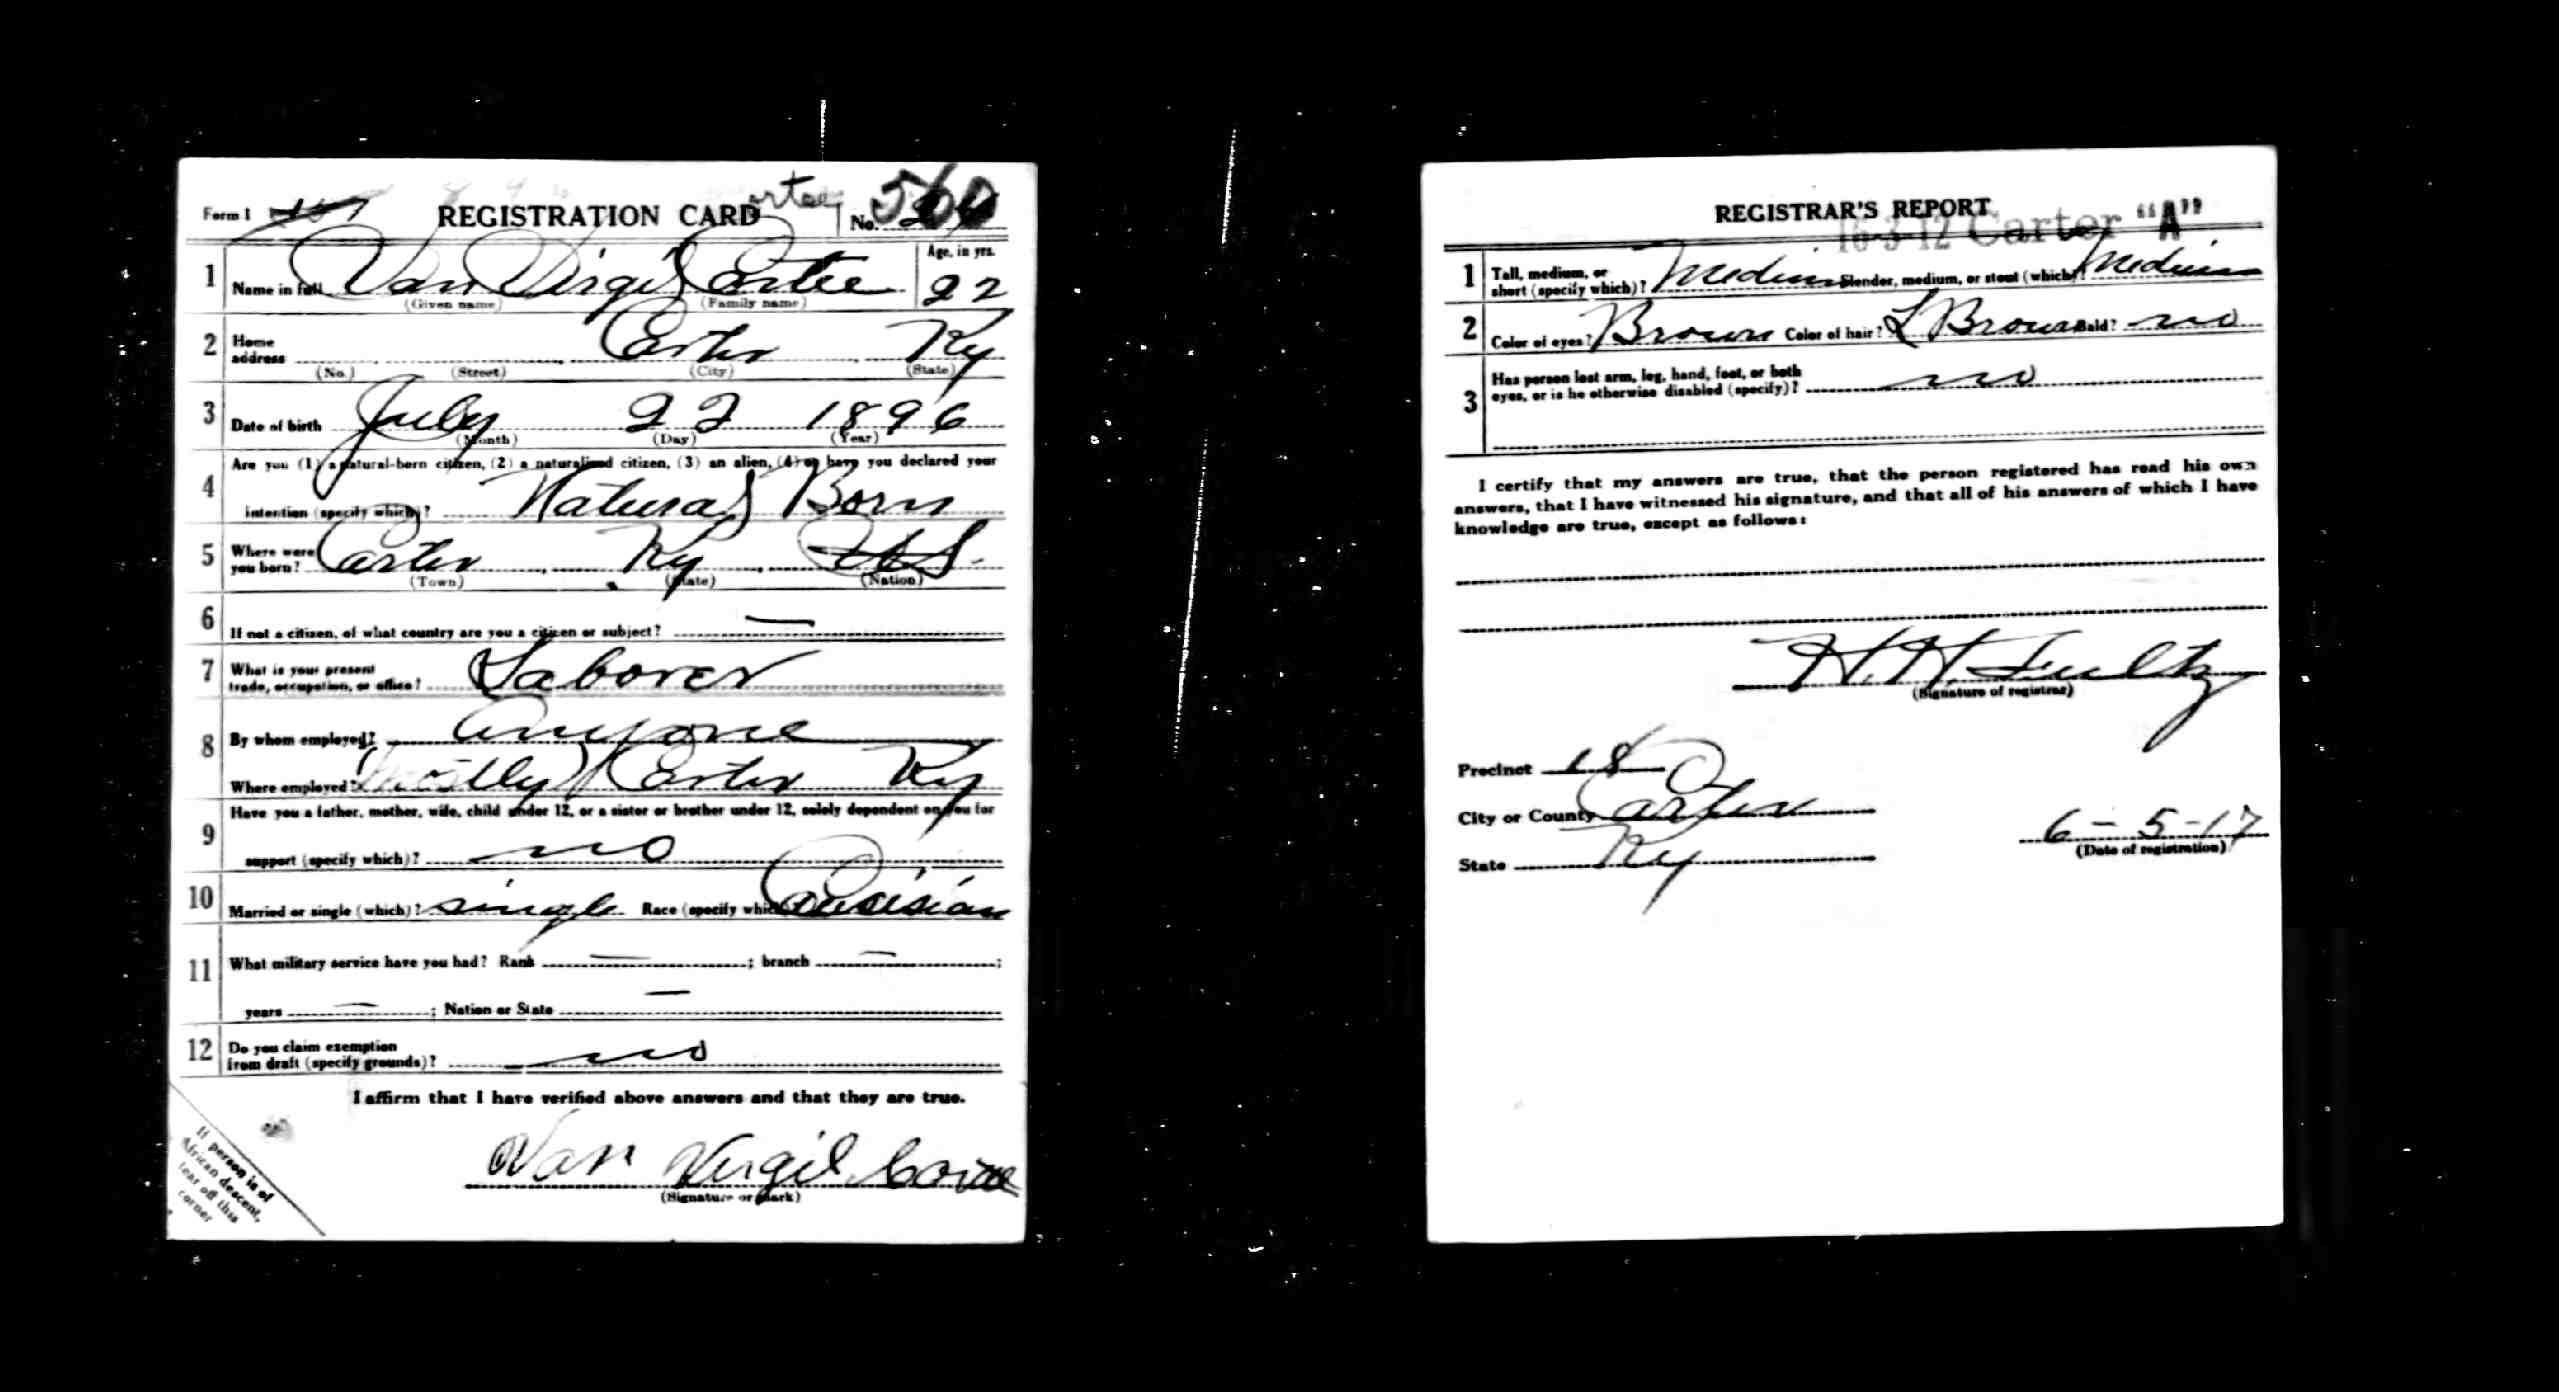 Form 1 REGISTRATION CARD No. 560
1 Name in full Van Virgil Cartee Age, in yrs. 22
(Given name) (Family name)
2 Home address Carter Ky
(No.) (Street) (City) (State)
3 Date of birth July 22 1896
(Month) (Day) (Year)
Are you (1) a natural-born citizen, (2) a naturalized citizen, (3) an alien, (4) or have you declared your
4 intention (specify which)? Natural Born
5 Where were you born? Carter Ky US.
(Town) (State) (Nation)
6 If not a citizen, of what country are you a citizen or subject? —
7 What is your present trade, occupation, or office? Laborer
8 By whom employed? Anyone
Where employed? (mostly) Carter Ky
Have you a father, mother, wife, child under 12, or a sister or brother under 12, solely dependent on you for
9 support (specify which)? no
10 Married or single (which)? single Race (specify which)? Caucisian
11 What military service have you had? Rank — ; branch — ;
years — ; Nation or State —
12 Do you claim exemption from draft (specify grounds)? no
I affirm that I have verified above answers and that they are true.
Van Virgil
(Signature or mark)
If person is of
African descent,
tear off this
corner
REGISTRAR'S REPORT
16-3-12 Carter "A"
1 Tall, medium, or short (specify which)? Medium Slender, medium, or stout (which)? Medium
2 Color of eyes? Brown Color of hair? L Brown Bald? no
3 Has person lost arm, leg, hand, foot, or both
eyes, or is he otherwise disabled (specify)? no
I certify that my answers are true, that the person registered has read his own
answers, that I have witnessed his signature, and that all of his answers of which I have
knowledge are true, except as follows:
H. H. Fultz
(Signature of registrar)
Precinct 18
City or County Carter
State Ky
6-5-17
(Date of registration)